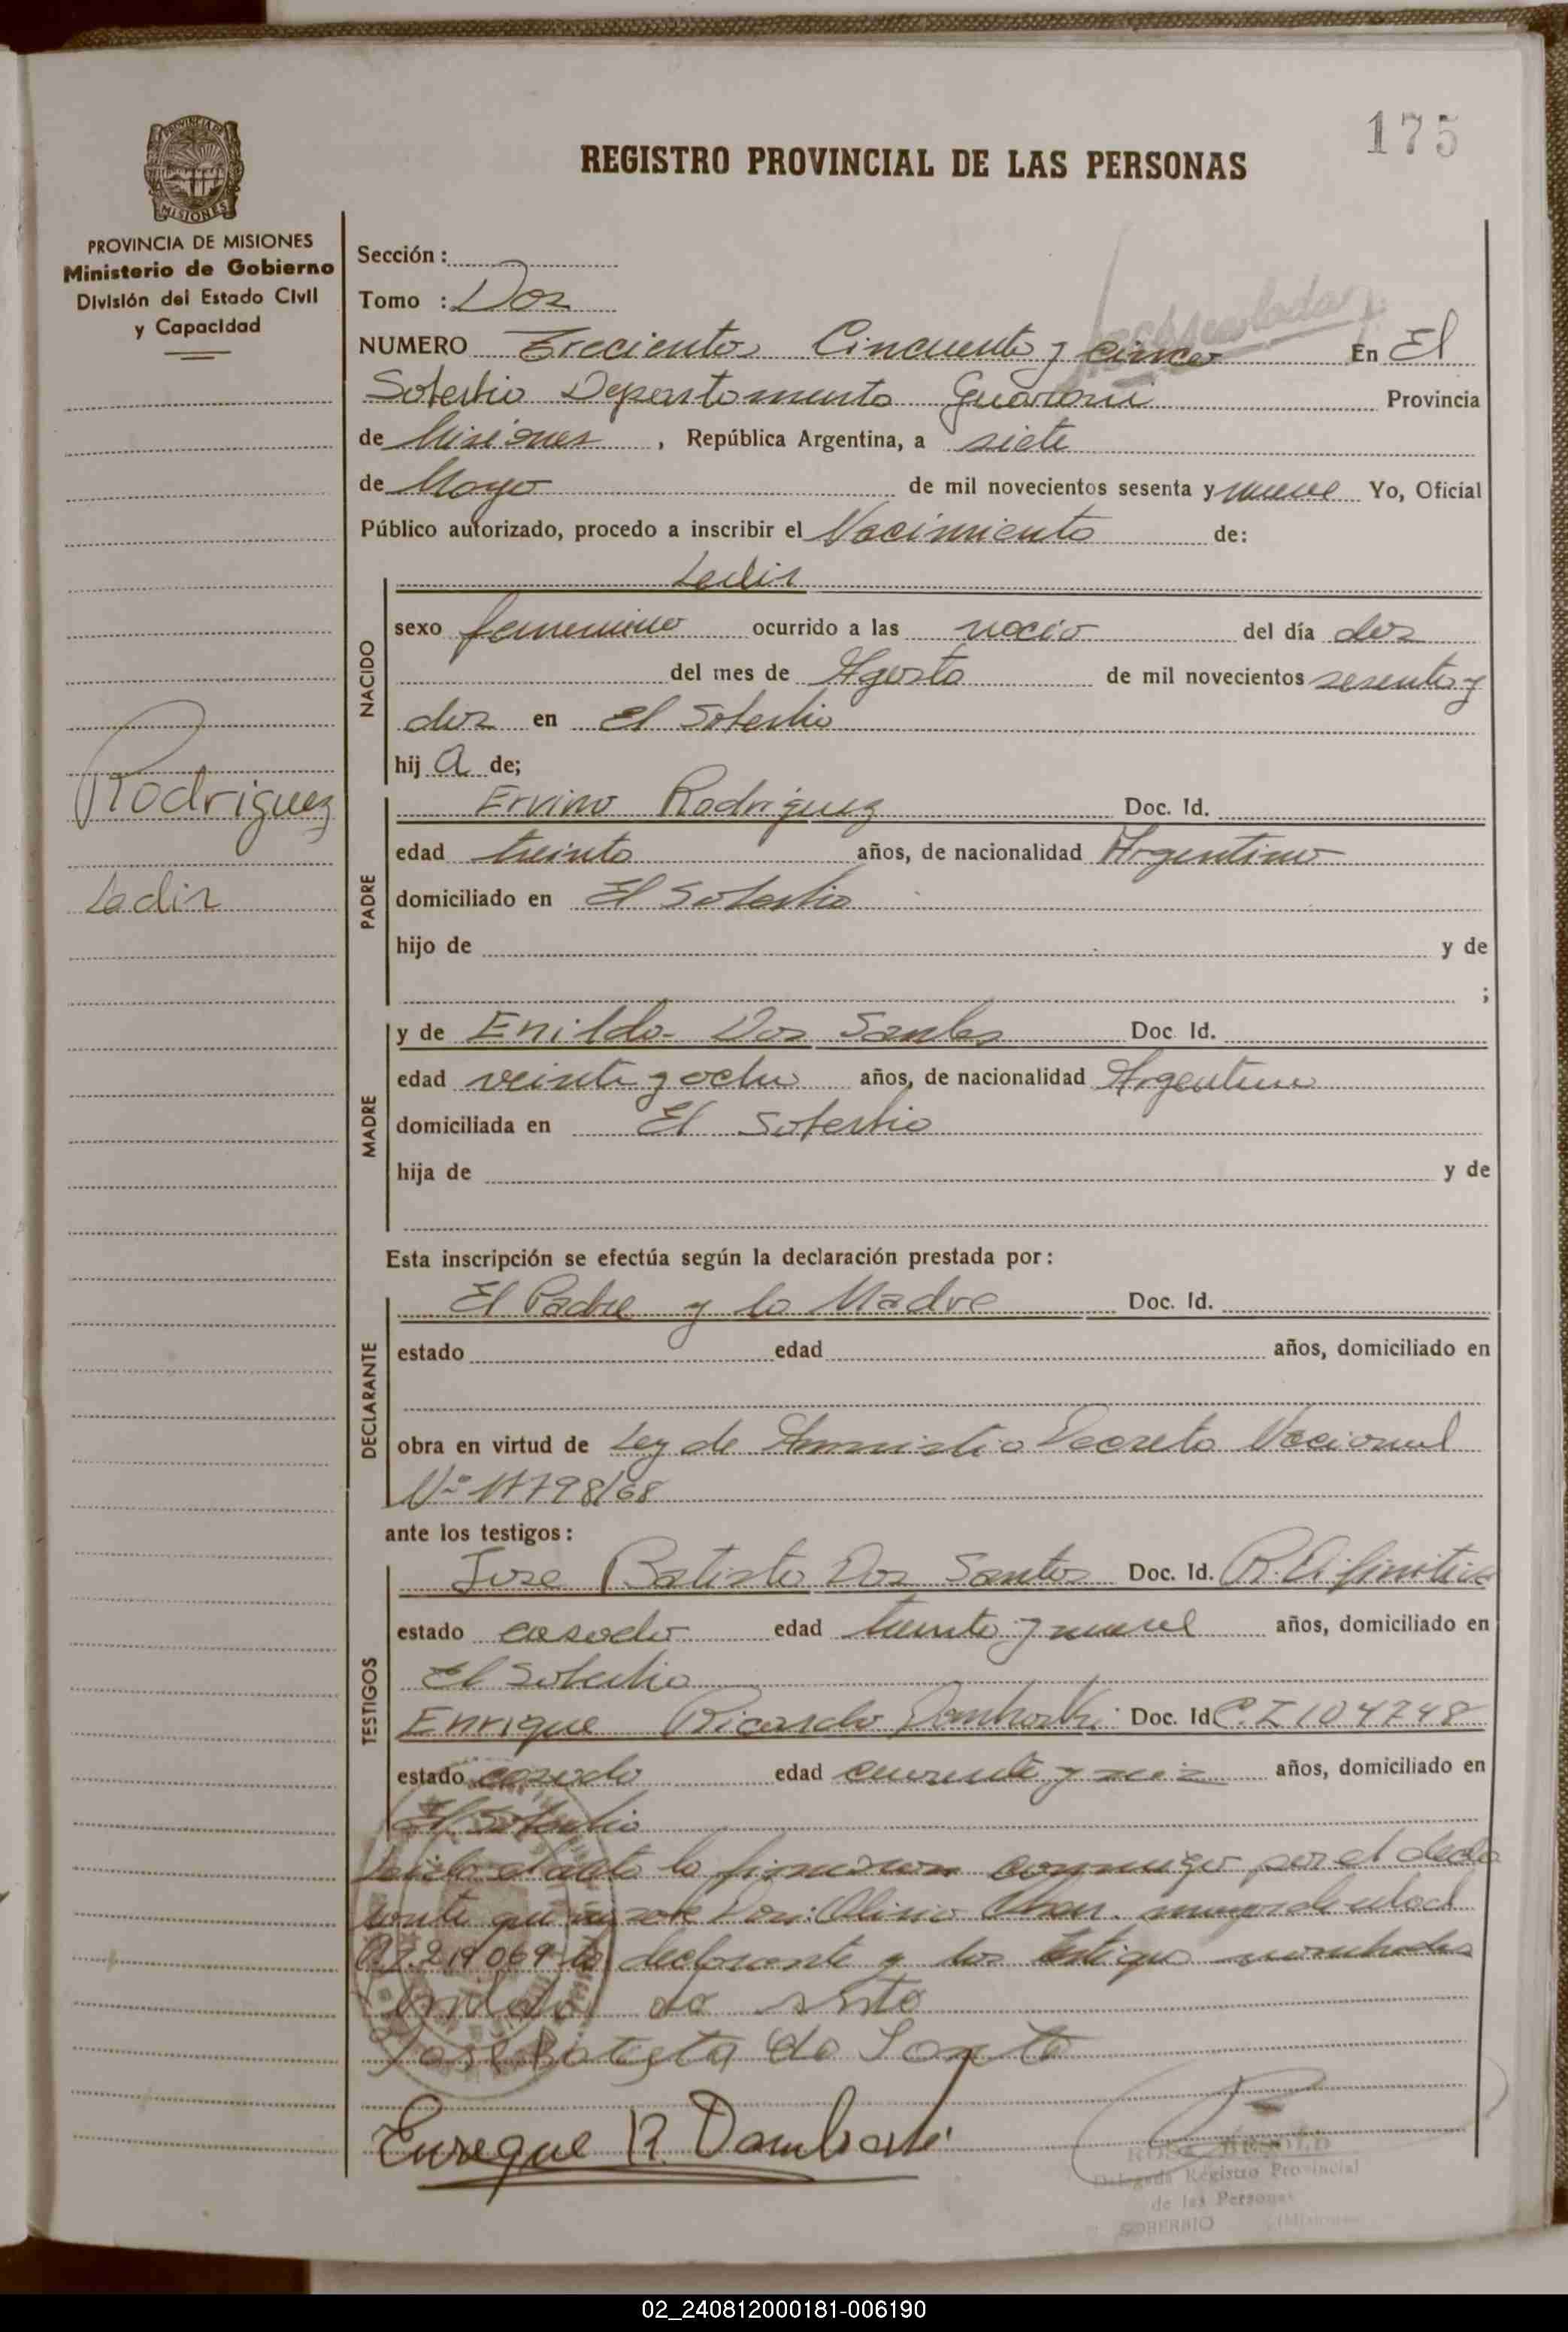 175
REGISTRO PROVINCIAL DE LAS PERSONAS
PROVINCIA DE MISIONES
MISIONES
PROVINCIA DE MISIONES
Ministerio de Gobierno
División del Estado Civil
y Capacidad
Rodriguez
Ledir
Sección :
Tomo : Dos
NUMERO Trecientos Cincuenta y cinco En El
Soberbio Departamento Guarani Provincia
de Misiones , República Argentina, a siete
de Mayo de mil novecientos sesenta y nueve Yo, Oficial
Público autorizado, procedo a inscribir el Nacimiento de:
NACIDO
Ledir
sexo femenino ocurrido a las nació del día dos
del mes de Agosto de mil novecientos sesenta y
dos en El Soberbio
hij a de;
PADRE
Ervino Rodriguez Doc. Id.
edad treinta años, de nacionalidad Argentino
domiciliado en El Soberbio
hijo de y de
;
MADRE
y de Enilda Dos Santos Doc. Id.
edad veinte y ocho años, de nacionalidad Argentina
domiciliada en El Soberbio
hija de y de
Esta inscripción se efectúa según la declaración prestada por :
DECLARANTE
El Padre y la Madre Doc. Id.
estado edad años, domiciliado en
obra en virtud de Ley de Amnistia Decreto Nacional
Nº 17798/68
ante los testigos :
TESTIGOS
Jose Batista Dos Santos Doc. Id.
estado casado edad treinta y nueve años, domiciliado en
El Soberbio
Enrique Ricardo Doc. Id C.I 104748
estado casado edad cuarenta y seis años, domiciliado en
El Soberbio
Leida el acta la firmaron conmigo por el decla
rante que no sabe Don: mayor de edad
declarante y los testigos nombrados
Jose Batista do
Enrique R.
Delegada Registro Provincial
de las Personas
SOBERBIO (Misiones)
02_240812000181-006190